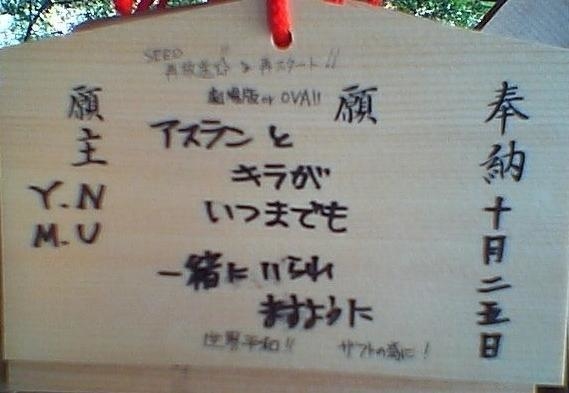 奉納十月二五日
願
SEED
再放送 & 再スタート!!
劇場版 or OVA!!
アスランと
キラが
いつまでも
一緒にいられ
ますように
世界平和!!
ザフトの為に!
願主
Y.N
M.U